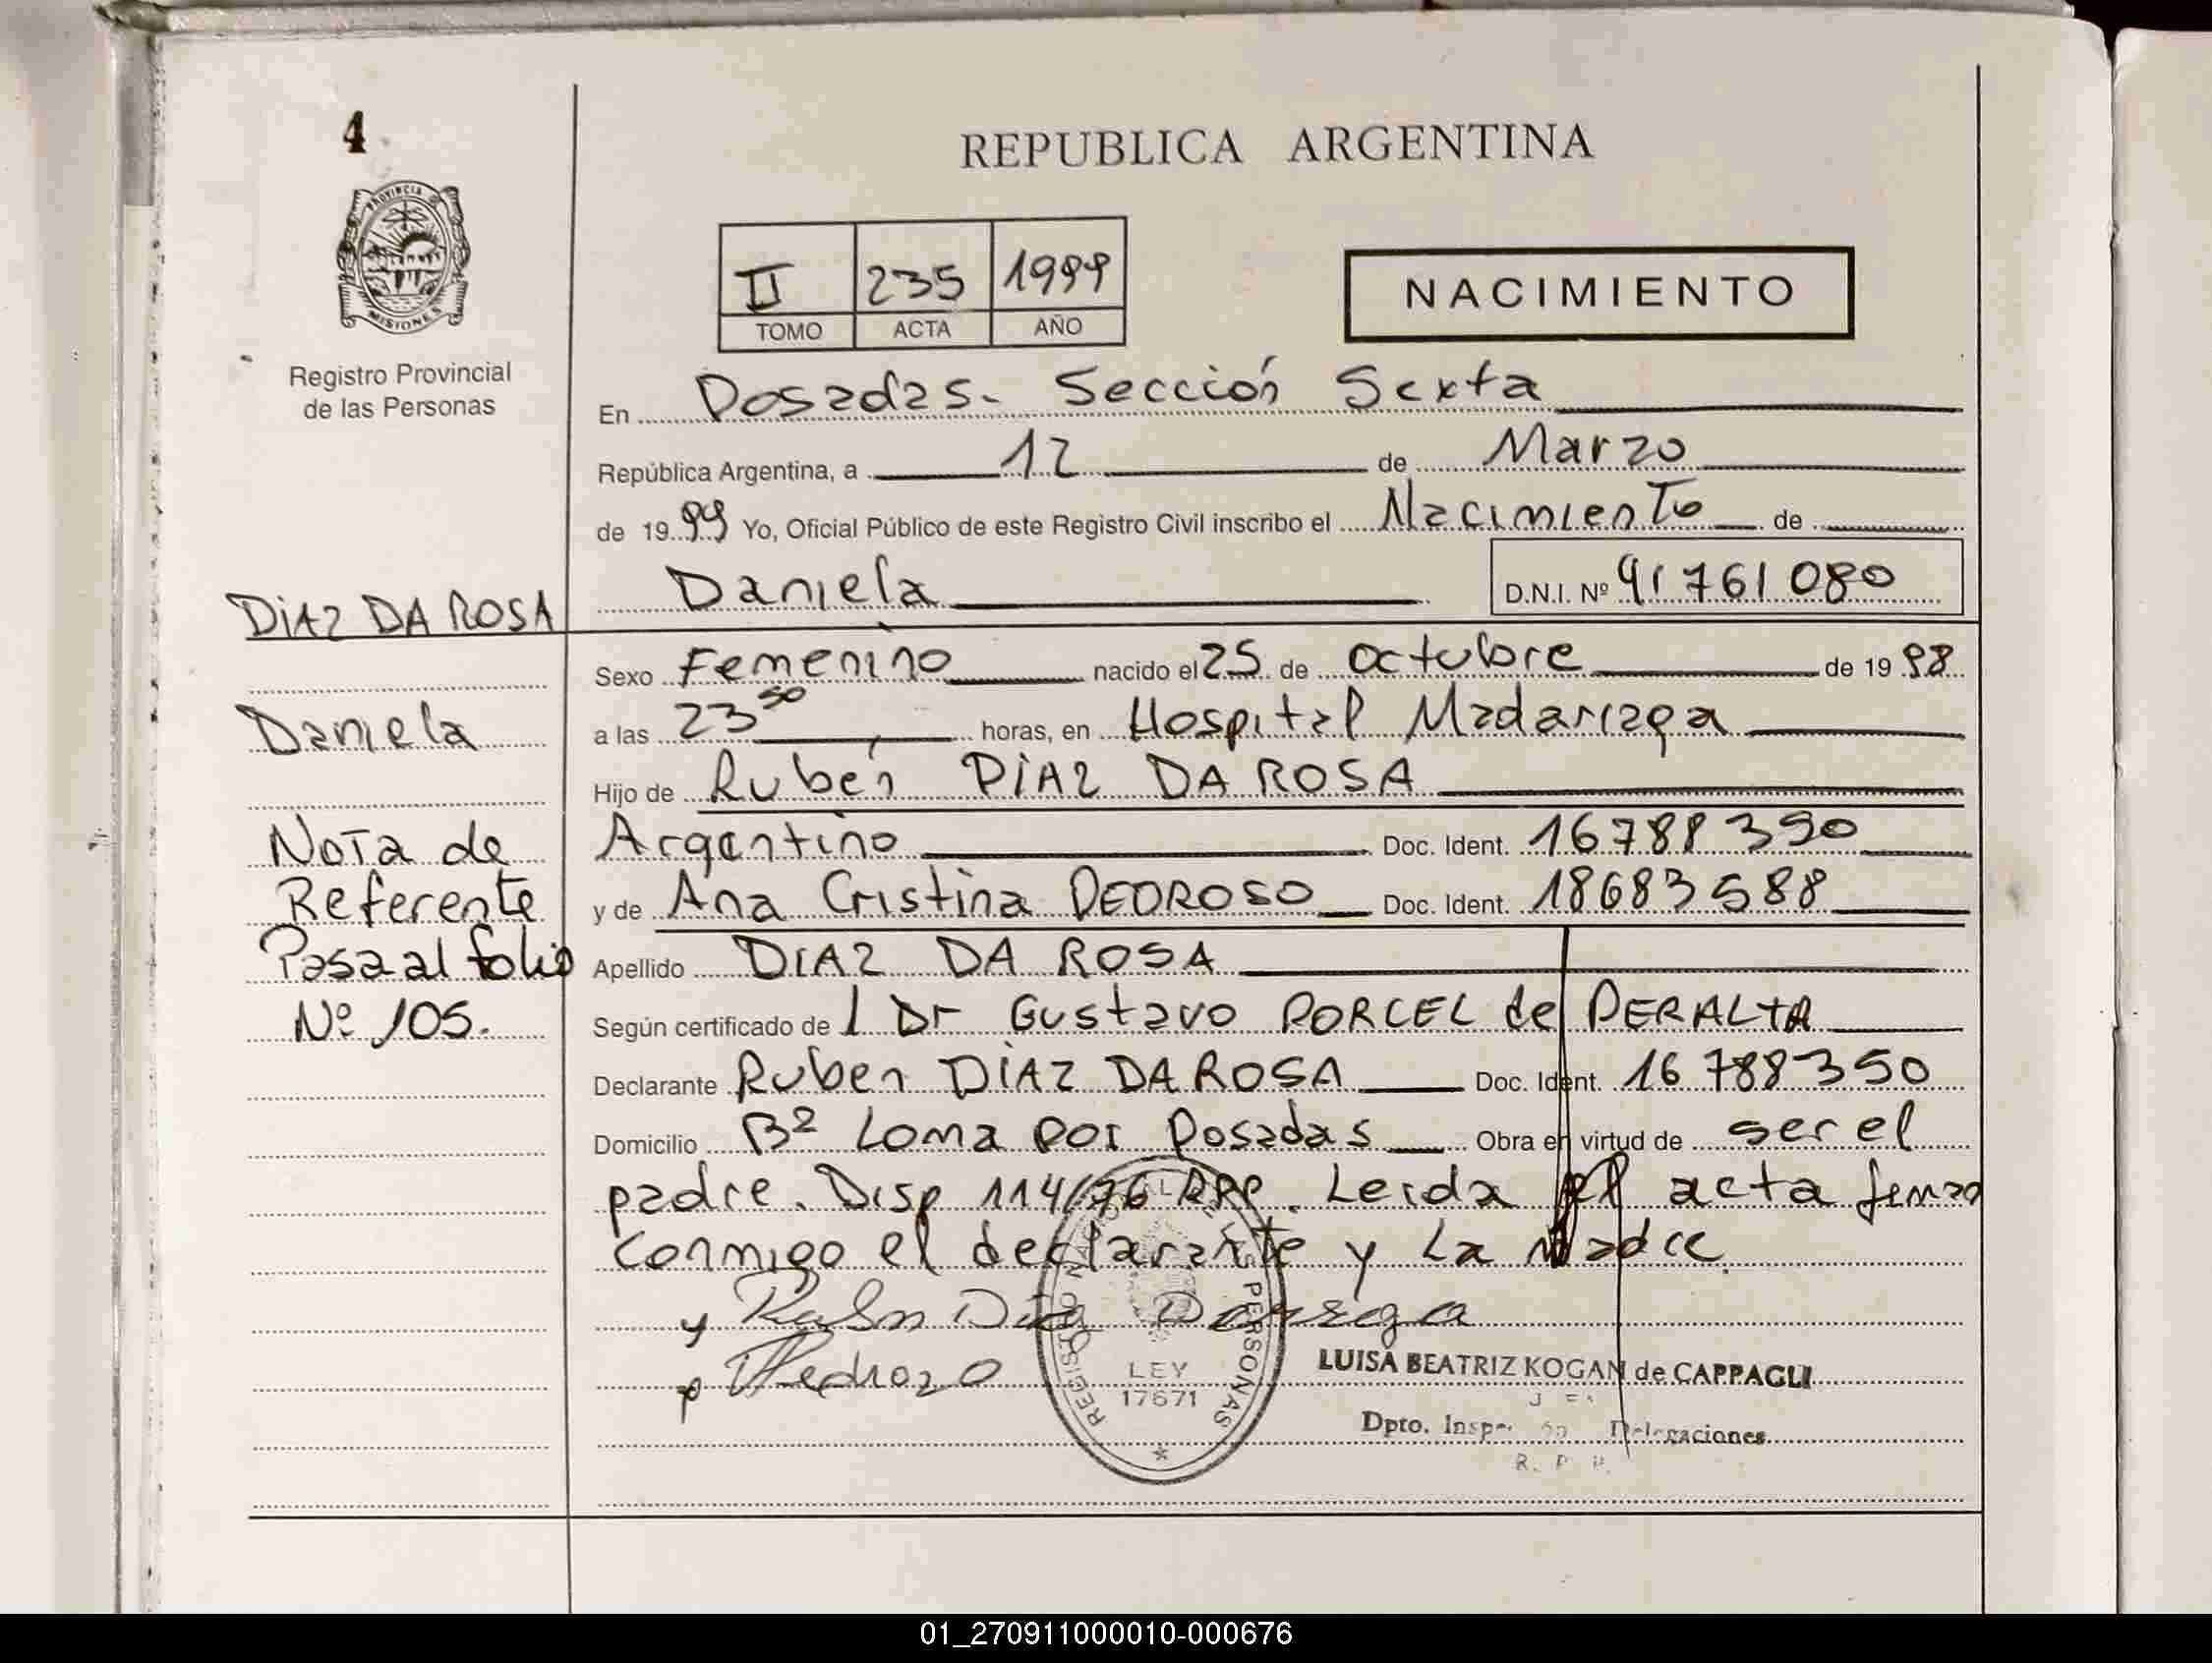 4
REPUBLICA ARGENTINA
PROVINCIA
MISIONES
Registro Provincial
de las Personas
II 235 1999
TOMO ACTA AÑO
NACIMIENTO
En Posadas. Sección Sexta
República Argentina, a 12 de Marzo
de 1999 Yo, Oficial Público de este Registro Civil inscribo el Nacimiento de
Daniela D.N.I. Nº 41761080
DIAZ DA ROSA
Sexo Femenino nacido el 25 de octubre de 1998
Daniela
a las 23 50 horas, en Hospital Madariaga
Hijo de Rubén DIAZ DA ROSA
Nota de
Referente
Pasa al folio
Nº 105.
Argentino Doc. Ident. 16788350
y de Ana Cristina PEDROSO Doc. Ident. 18683588
Apellido DIAZ DA ROSA
Según certificado de l Dr Gustavo PORCEL de PERALTA
Declarante Ruben DIAZ DA ROSA Doc. Ident. 16788350
Domicilio Bº Loma por Posadas Obra en virtud de ser el
padre. Disp 114/76 RPP. Leida el acta firman
conmigo el declarante y La Madre
Pedrozo
REGISTRO NACIONAL DE LAS PERSONAS
LEY
17671
LUISA BEATRIZ KOGAN de CAPPAGLI
Dpto. Delegaciones
R. P. P.
01_270911000010-000676